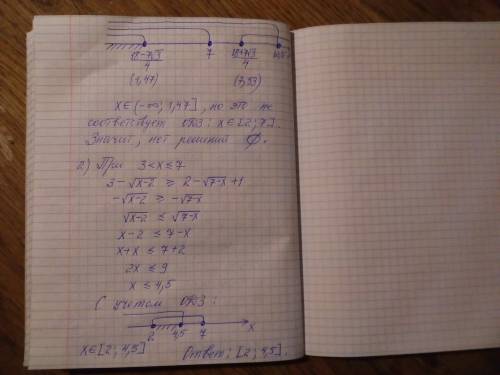 18-7√3/4 7 18+7√3/4 10,5
(1,47) (7,53)
x∈(-∞; 1,47], но это не
соответствует ОДЗ: x∈[2;7].
Значит, нет решений ∅.
2) При 3<x≤7
3-√x-2 ≥ 2-√7-x+1
-√x-2 ≥ -√7-x
√x-2 ≤ √7-x
x-2 ≤ 7-x
x+x ≤ 7+2
2x ≤ 9
x ≤ 4,5
С учетом ОДЗ:
2 4,5 7 x
x∈[2; 4,5] Ответ: [2; 4,5].